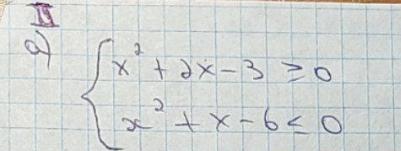 II
a)
x² + 2x - 3 ≥ 0
x² + x - 6 ≤ 0